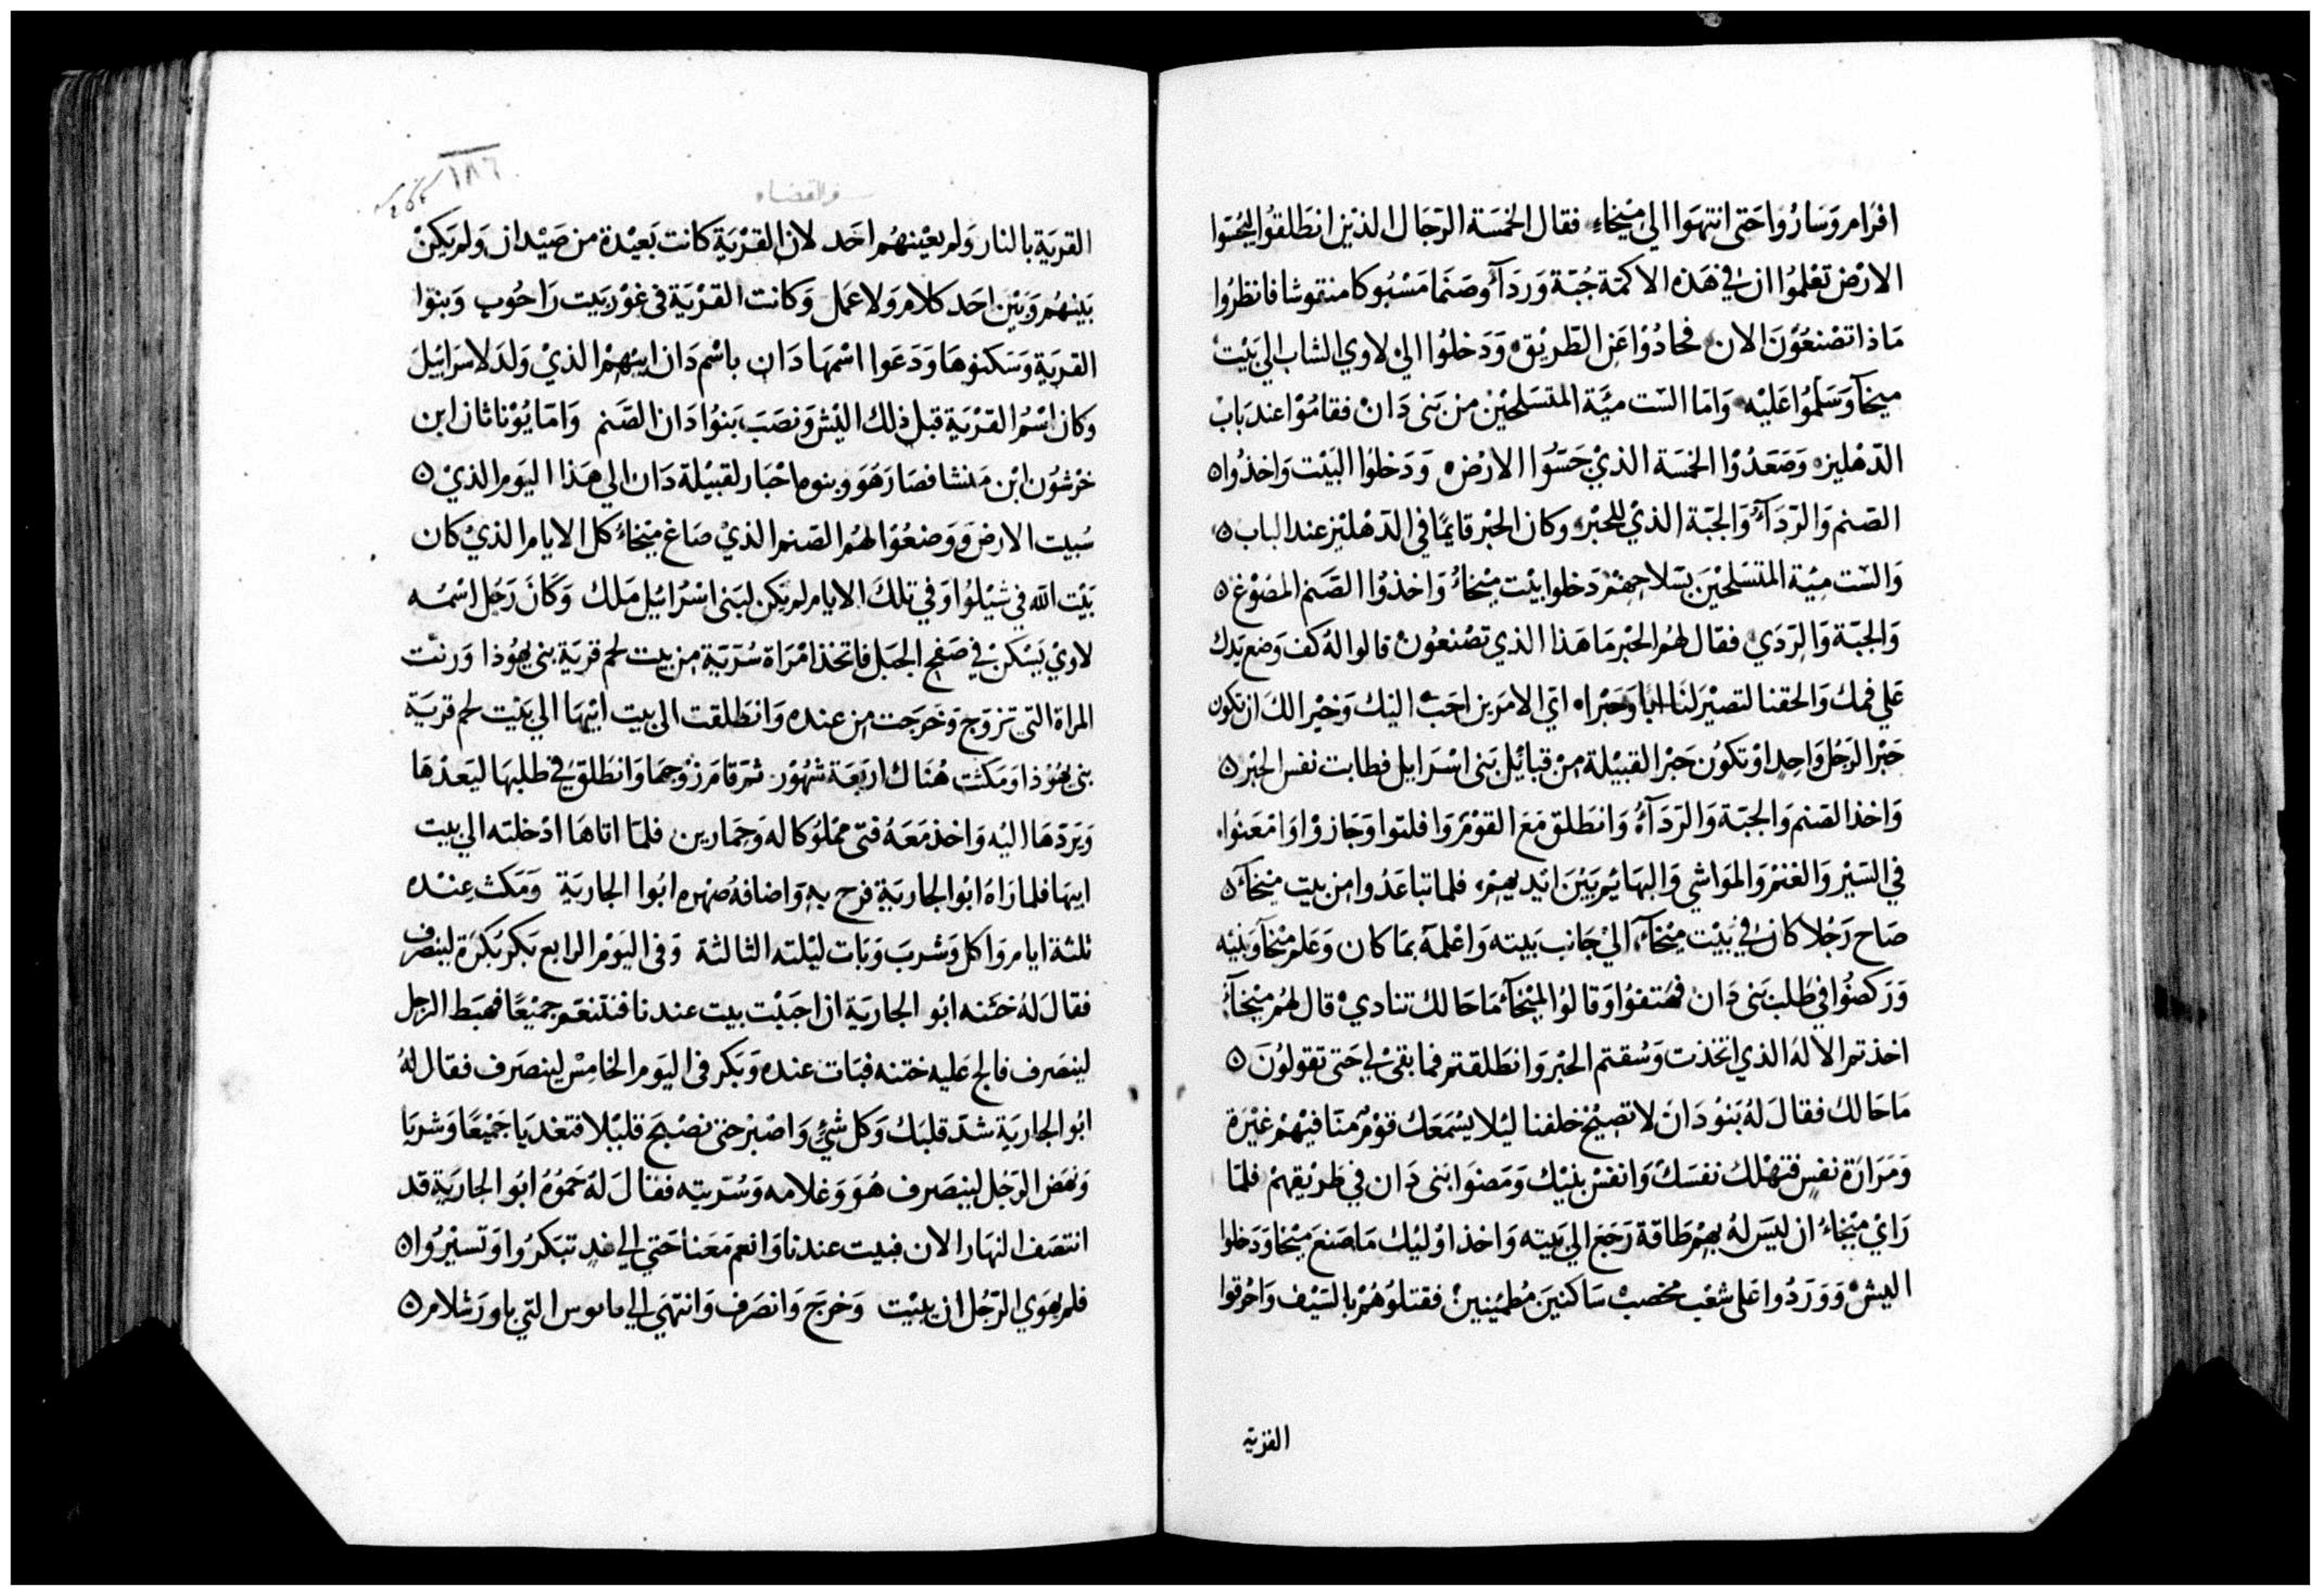 افرام وَسَارُوا حَتى انتهَوا الي ميْخاء فقال الخمسَة الرّجَال الذيْن انطَلقوُا ليَحُسّوا
الارْض تعْلموُا ان في هَذه الاكمّة جُبّة وَرَدآء وصَنَما مَسْبُوكا منقوشا فانظرُوا
مَاذا تصْنعُوْنَ الان فحادُوْا عَن الطّريْق وَدَخلوُا الي لاوي الشاب الي بَيْت
ميخآ وَسَلّمُوْا عَليْه وَامّا السّت ميّة المتسَلحيْن من بَنى دَانْ فقامُوْا عند بَابْ
الدّهْليز وَصَعَدُوْا الخمسَة الذيْ حَسّوُا الارْض وَدَخلوُا البَيْت وَاخذُوا
الصّنم وَالرّدَآء وَالجبّة الذيْ للحَبْر وكان الحَبْر قايمًا في الدّهْليز عند الباب
وَالسّت ميّة المتسَلحيْنَ بسَلاحِهِمْ دَخلوا بيْت ميْخاءُ وَاخذوُا الصَّنم المصُوْغ
وَالجبّة وَالرّدَي فقال لهُم الحَبْر مَا هَذا الذي تصْنعُوْن قالوا لهُ كف وَضع يَدك
عَلي فمك وَالحقنا لتصيْرَ لنَا ابًا وَحَبْراً ايّ الامرَين احَبّ اليْك وَخيْرا لك ان تكون
حَبْرا لرَجُل وَاحِد اوْ تكوُن حَبْرا لقبيْلة مِنْ قبائِل بَنى اسْرَايل فطابت نفس الحَبْر
وَاخذ الصّنم وَالجبّة وَالرّدَآءُ وَانطَلق مَعَ القوْم وَاقبلوا وَجَازوْا وَامْعَنوُا
في السّيْر وَالغنمْ وَالموَاشي وَالبهَائِم بَيْن ايْديهِمْ فلما تباعَدُوا من بيت ميْخآء
صَاح رَجُلا كان في بيْت ميْخآء الي جَانب بَيته وَاعْلمَهُ بمَا كان وَعَلم ميْخآ وَبنيْه
وَرَكضوُا في طَلب بَنى دَان فهَتفوُا وَقالوُا لميْخآء مَا حَالك تناديْ قال لهُم ميْخآءُ
اخذتم الالهُ الذي اتخذت وَسُقتم الحَبْر وَانطَلقتم فما بقى لي حَتى تقولوُنَ
مَا حَالك فقالَ لهُ بَنوُ دَانَ لا تصِيْح خلفنا ليْلا يَسْمَعَك قوْم منّا فيْهمْ غيْرَة
وَمَرَارَة نفسٍ فتهْلك نفسَكَ وَانفسْ بنيْك وَمَضوَا بَنى دَان في طَريْقهمْ فلمّا
رَايْ ميْخاءُ ان ليسَ لهُ بهِمْ طَاقة رَجَع الي بَيته وَاخذ اوْليْك مَا صَنع ميْخا وَدَخلوا
اليشْ وَوَرَدُوا عَلى شعْب مخصب سَاكنينَ مُطمْينين فقتلوُهُمْ بالسّيْف وَاحْرقوا
القرْية
١٨٦
والقضاه
القريَة بالنار وَلم يعْينهُم احَد لان القريَة كانت بَعيْدة من صَيْدان وَلم يَكنْ
بَينهُم وَبَيْن احَد كلام وَلا عَمل وَكانت القرْيَة فى غوْر بَيت رَاحُوب وَبنوَا
القريَة وَسَكنوهَا وَدَعَوا اسْمهَا دَان باسْم دَان ابيْهمْ الذيْ وَلدَ لاسَرَاييلَ
وَكان اسْمُ القرْيَة قبل ذلك اليْش وَنصَبَ بَنوُا دَان الصّنم وَامّا يوُناثان ابن
خرْشوُن ابْن مَنشا فصَارَ هَوَ وبنوه احْبَار لقبيْلة دَان الي هَذا اليَوم الذيْ
سُبيت الارض وَوَضعُوْا لهُم الصّنم الذيْ صَاغ ميْخاءُ كل الايام الذيْ كان
بَيْت الله في شيْلوُا وَفي تلكَ الايام لم يَكن لبَنى اسْرَاييل مَلك وَكَانَ رَجُل اسْمُه
لاويْ يَسْكنْ في صَفح الجبَل فاتخذ امْرَاة سُرّيَة من بيت لحم قريَة بنى يهُوذا وَرنت
المراة التى تزوَج وَخَرَجَت من عنده وَانطَلقت الى بيت ابيْهَا الي بَيْت لحم قريَة
بنى يهُوْذا وَمَكثت هُنَاك ارْبَعَة شهُوْر ثمّ قام زوْجهَا وَانطَلق في طلبهَا ليَعدْهَا
وَيَردّهَا اليْه وَاخذ مَعَهُ فتى ممْلوُكا له وَحِمَارين فلمّا اتاهَا ادْخلته الي بيت
ابيهَا فلما رَاهُ ابُوا الجاريَة فرح بهِ وَاضافهُ صهره ابُوا الجاريَة وَمَكث عِنْده
ثلثة ايام وَاكل وَشربَ وَبَات ليْلته الثالثة وَفى اليَوم الرابع بَكر بُكرَة لينصَرف
فقالَ لهُ ختنه ابُو الجاريَة ان احبَبْت بيت عندنا فنتنعَم جَميْعًا فهبَط الرجل
لينصَرف فالح عَليه ختنه فبَات عنده وَبَكر فى اليَوم الخامِسْ لينصَرف فقال لهُ
ابُو الجاريَة شدّ قلبَك وَكل شيْء وَاصْبرْ حَتى نصْبح قليْلا فتغديا جَميْعًا وَشربَا
وَنهَض الرّجُل لينصَرف هُوَ وَغلامه وَسُرّيته فقالَ لهُ حَموُهُ ابُو الجاريَة قد
انتصَف النهَار الان فبيت عندنا وَانعم مَعَنا حَتي الي غدٍ تبَكرُوا وَتسيْرُوا
فلم يهوَي الرّجُل ان يبيْت وَخرَج وَانصَرف وَانتهَي الي يابوس التي ياورَشلام